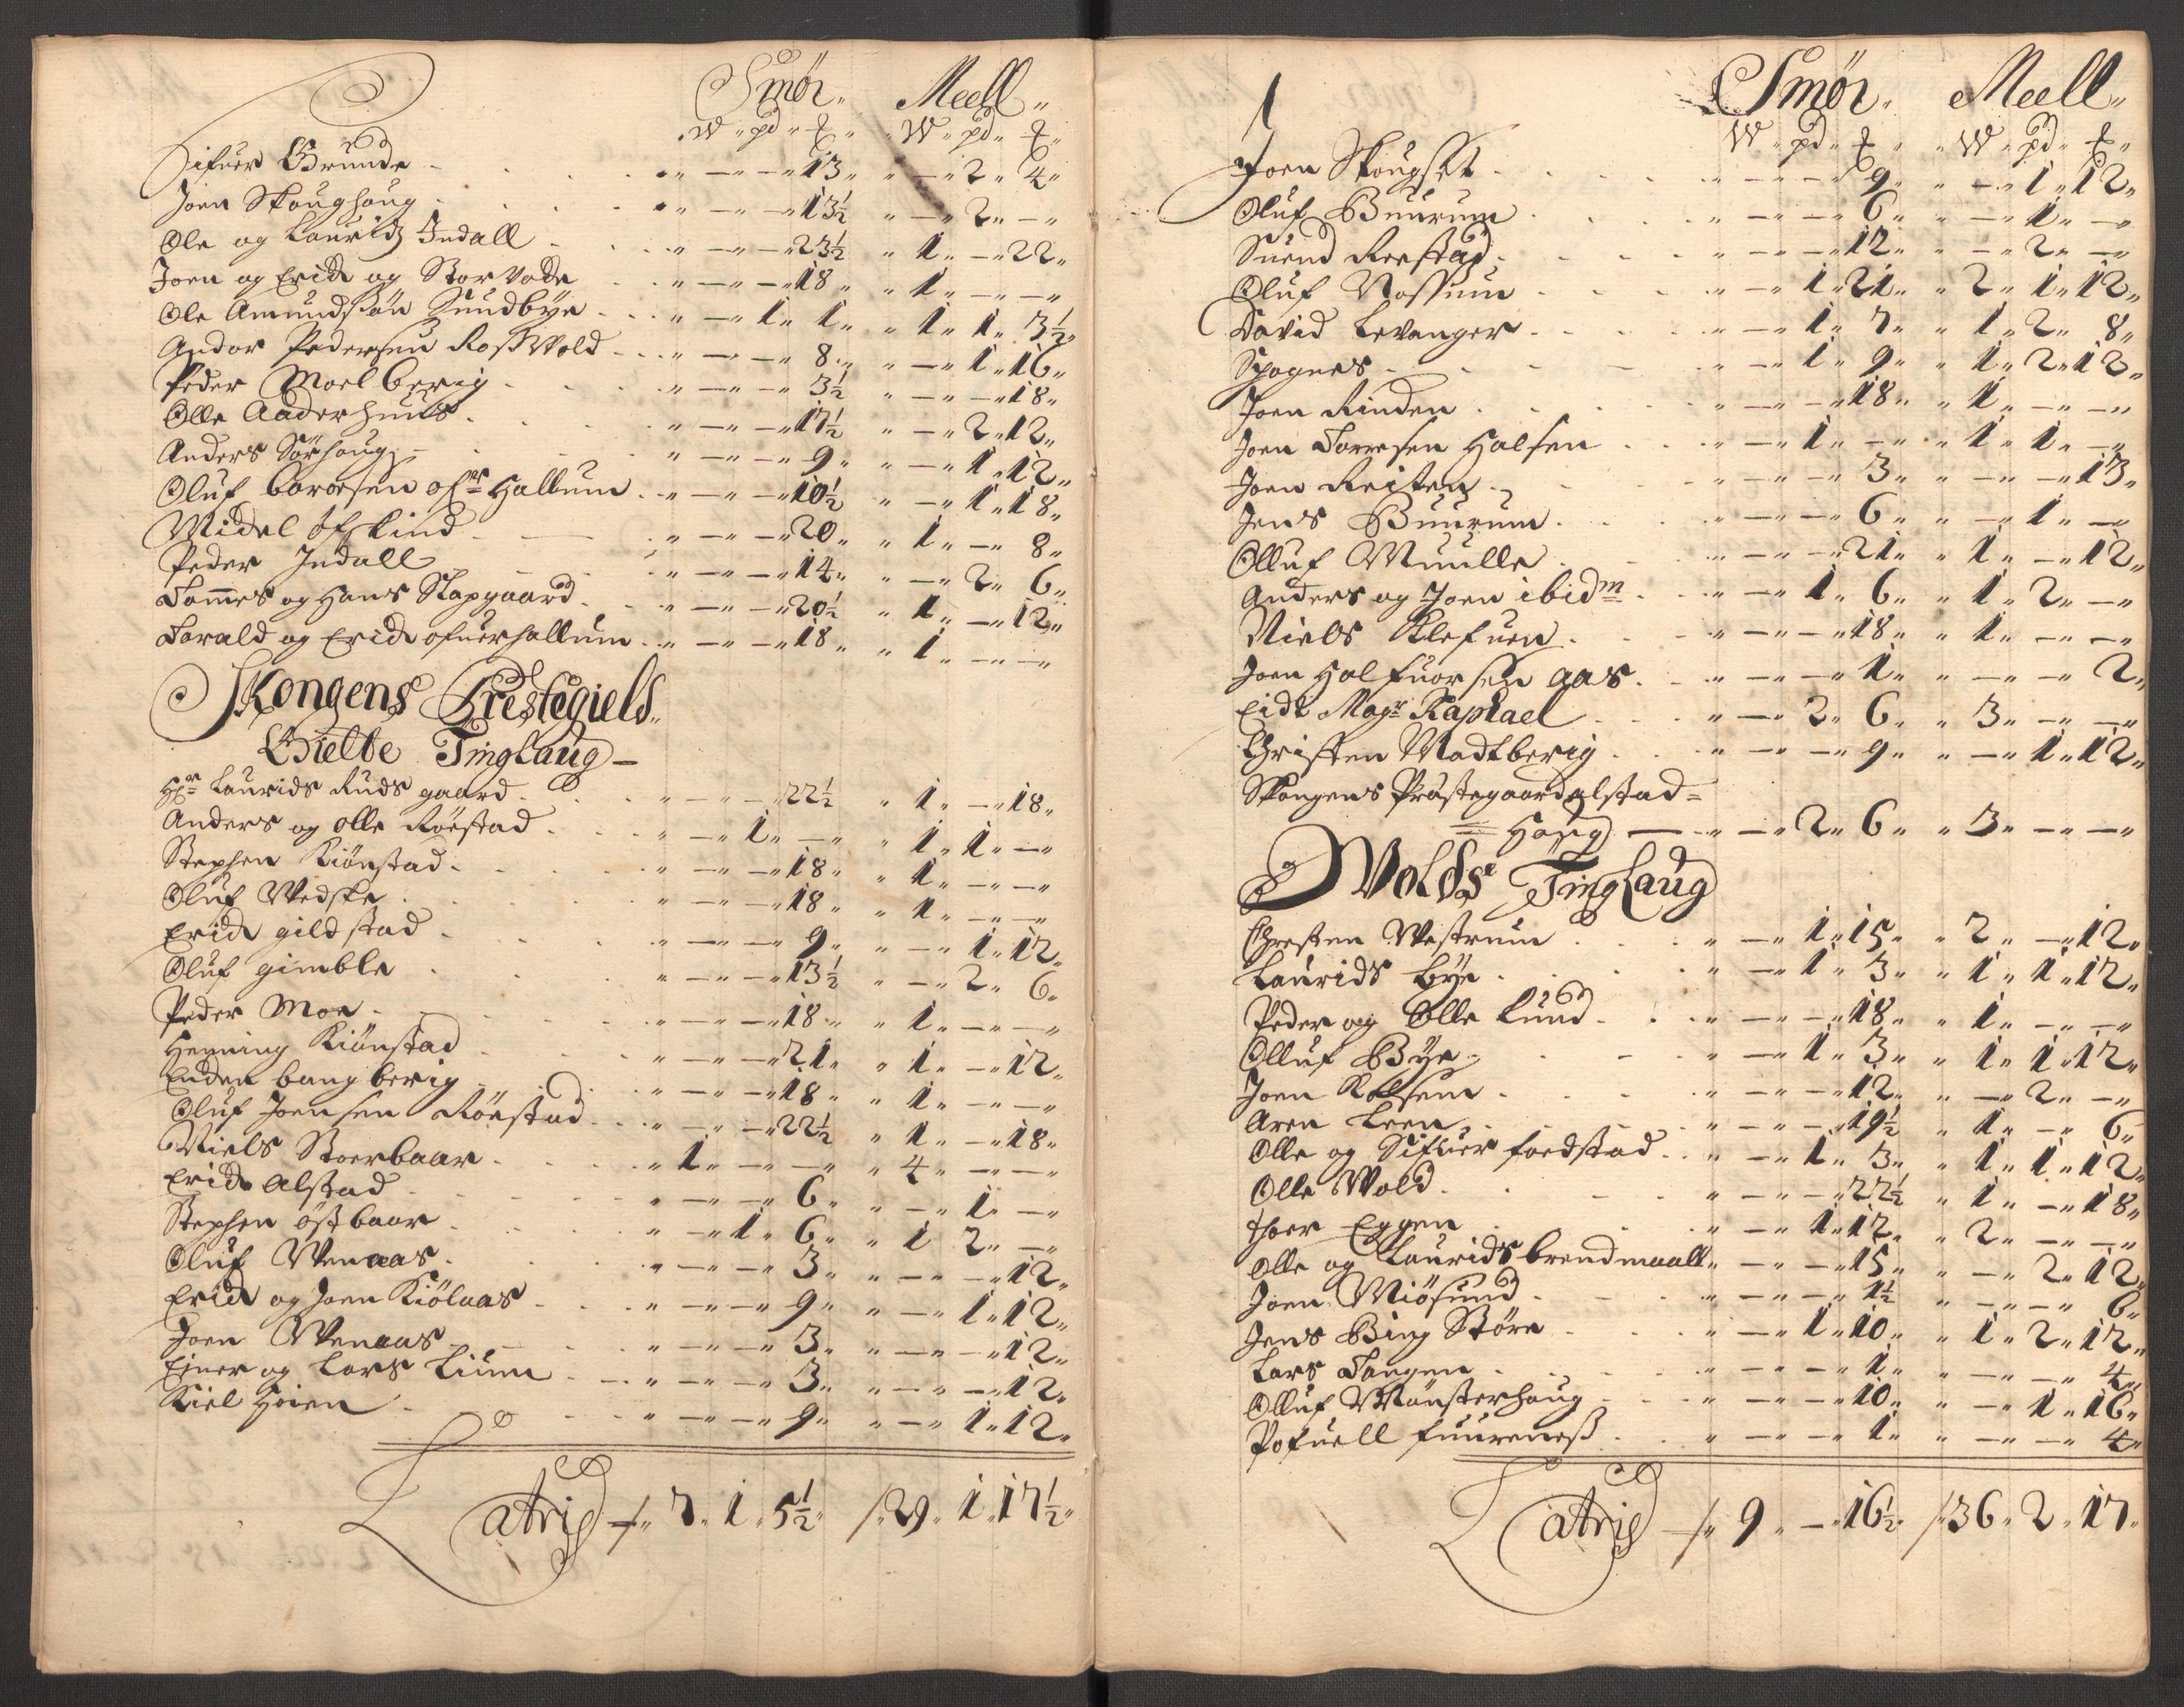 Smör. Meell.
W. pd. ℔. W. pd. ℔.
Sifuer Grunde . . . — — 13. — 2. 4.
Joen Skoughoug . . . — — 13½ — 2. —
Ole og Lauridz Indall . . . — — 23½ 1. — 22.
Joen og Erich og Stor Vode . . . — — 18. 1. — —
Ole Amundssön Sundbÿe . . . — 1. 1. 1. 1. 3½.
Andor Pedersen Rosswold . . . — — 8. — 1. 16.
Peder Moelberig . . . — — 3½ — — 18.
Olle Aaderhuus . . . — — 17½ — 2. 12.
Anders Sörhoug . . . — — 9. — 1. 12.
Oluf of Hallum . . . — — 10½ — 1. 18.
Midel . . . — — 20. 1. — 8.
Peder Indall . . . — — 14. — 2. 6.
Tommes og Hans Stapgaard . . . — — 20½ 1. — 12.
Torald og Erich ofuerhallum . . . — — 18. 1. — —
Skongens Prestegield.
Gielte Tinglaug —
Hr. Laurids Ruds gaard . . . — — 22½ 1. — 18.
Anders og olle Röestad . . . — 1. — 1. 1. —
Stephen Kiönstad . . . — — 18. 1. — —
Oluf Wedske . . . — — 18. 1. — —
Erich gildstad . . . — — 9. — 1. 12.
Oluf gimble . . . — — 13½ — 2. 6.
Peder Moe . . . — — 18. 1. — —
Henning Kiönstad . . . — — 21. 1. — 12.
Enden bangberig . . . — — 18. 1. — —
Oluf Joensen Röestad . . . — — 22½ 1. — 18.
Niels Storbaar . . . 1. — — 4. — —
Erich Alstad . . . — — 6. — 1. —
Stephen östbaar . . . — 1. 6. 1 2. —
Oluf Wenaas . . . — — 3. — — 12.
Erich og Joen Kiölaas . . . — — 9. — 1. 12.
Joen Wenaas . . . — — 3. — — 12.
Einer og Lars Lium . . . — — 3. — — 12.
Kiel Hoien . . . — — 9. — 1. 12.
Latris — /. 7. 1. 5½. /. 29. 1. 17½.
Smör. Meell.
W. pd. ℔. W. pd. ℔.
Joen Skougset . . . — — 9. — 1. 12.
Oluf Buurum . . . — — 6. — 1. —
Suend Reestad . . . — — 12. — 2. —
Oluf Nossum . . . — 1. 21. 2. 1. 12.
David Levanger . . . — 1. 7. 1. 2. 8.
Spognes . . . — 1. 9. 1. 2. 13.
Joen Rinden . . . — — 18. 1. — —
Joen Torresen Halsen . . . — 1. — 1. 1. —
Joen Reiten . . . — — 3. — — 13.
Jens Buurum . . . — — 6. — 1. —
Olluf Muulle . . . — — 21. 1. — 12.
Anders og Joen ibidm . . . — 1. 6. 1. 2. —
Niels Klefuen . . . — — 18. 1. — —
Joen Halfuorsen aas . . . — — 1. — — 2.
Eide Magr Raphael . . . — 2. 6. 3. — —
Christen Madtberig . . . — — 9. — 1. 12.
Skongens Præstegaard alstad =
= Houg — — 2. 6. 3. — —
Wolds Tinglaug
Chresten Westrum . . . — 1. 15. 2. — 12.
Laurids bÿe . . . — 1. 3. 1. 1. 12.
Peder og Olle Lund . . . — — 18. 1. — —
Olluf Bÿe . . . — 1. 3. 1. 1. 12.
Joen Rolsem . . . — — 12. — 2. —
Aren Leen . . . — — 19½ 1. — 6.
Olle og Sifuer foedstad . . . — 1. 3. 1. 1. 12.
Olle Wold . . . — — 22½ 1. — 18.
thoer Eggen . . . — 1. 12. 2. — —
Olle og Laurids brendmaall . . . — — 15. — 2. 12.
Joen Miösund . . . — — 1½ — — 6.
Jens Bing Störe . . . — 1. 10. 1. 2. 12.
Lars Tangen . . . — — 1. — — 4.
Olluf Mönsterhoug . . . — — 10. — 1. 16.
Pofuell fuureness . . . — — 1. — — 4.
Latris — /. 9. — 16½. /. 36. 2. 17.